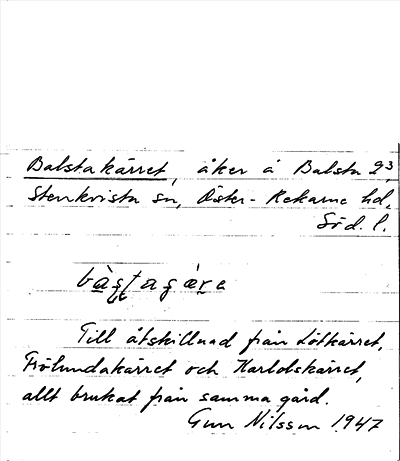 Balstakärret, åker å Balsta 2³,
Stenkvista sn, Öster-Rekarne hd,
Söd. l.
Till åtskillnad från Lötkärret,
Frölundakärret och Karlolskärret,
allt brukat från samma gård.
Gun Nilsson 1947